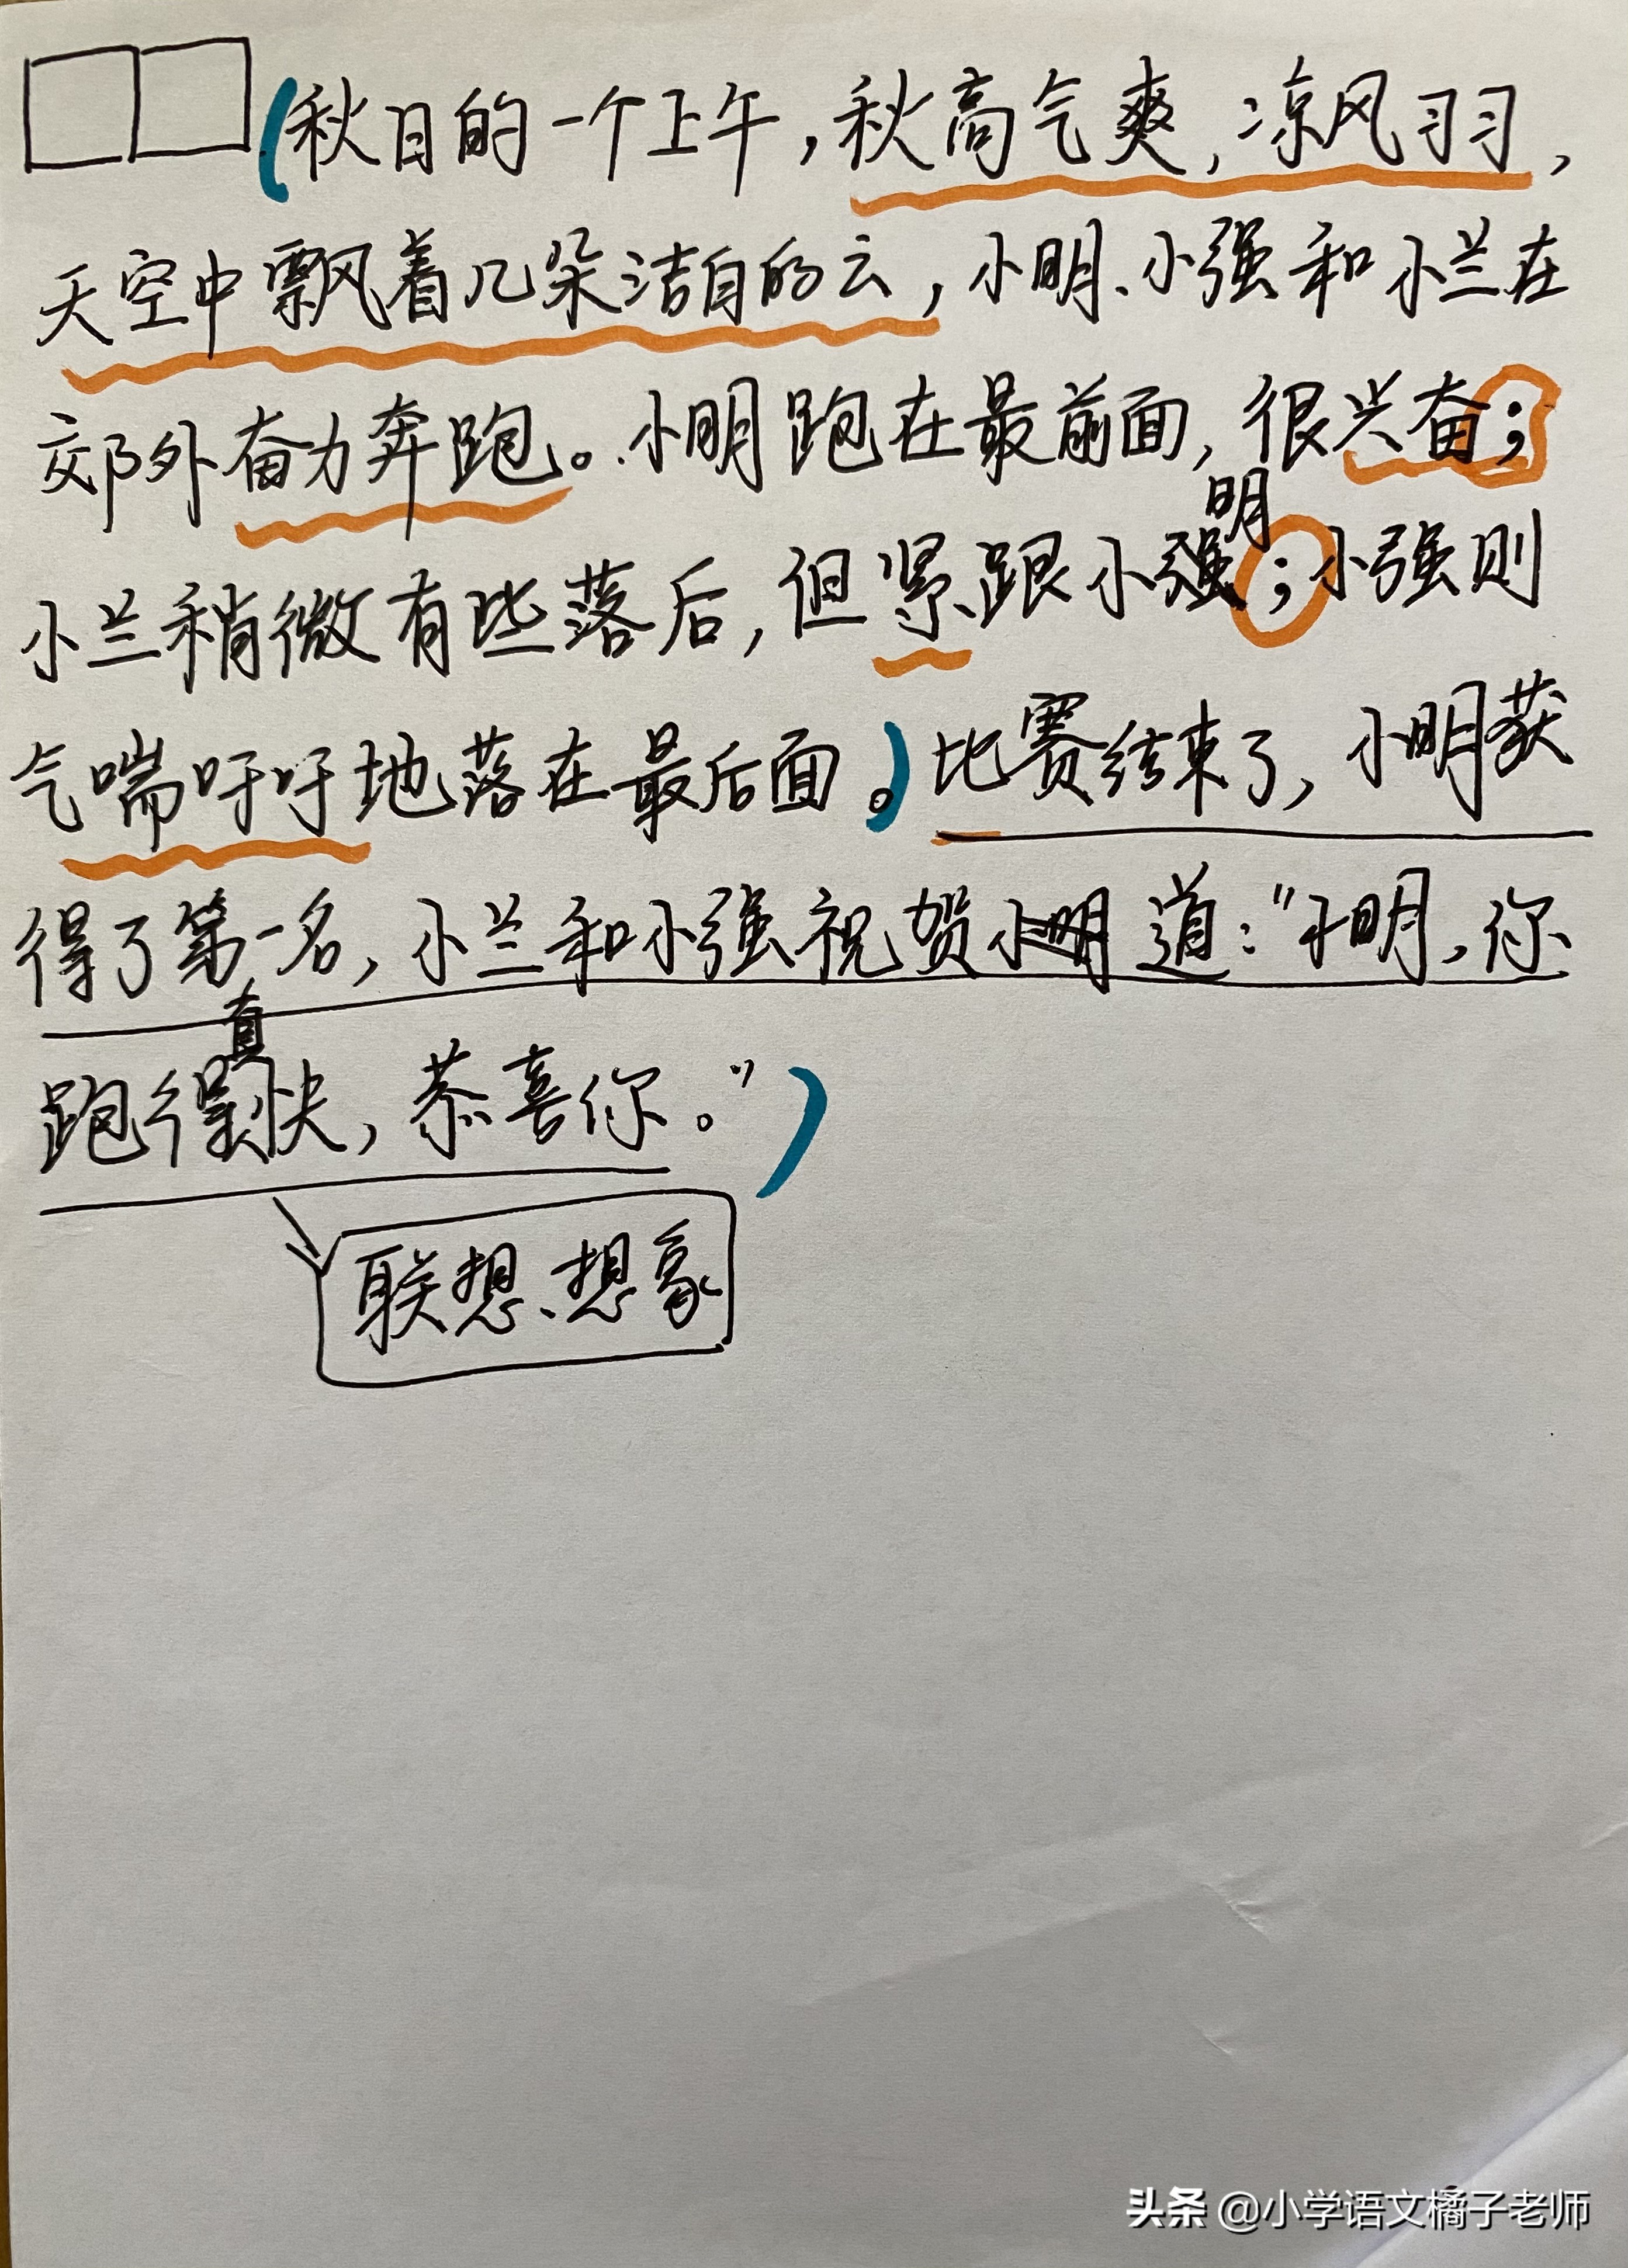 （秋日的一个上午，秋高气爽，凉风习习，
天空中飘着几朵洁白的云，小明、小强和小兰在
郊外奋力奔跑。小明跑在最前面，很兴奋；
明
小兰稍微有些落后，但紧跟小强；小强则
气喘吁吁地落在最后面。）比赛结束了，小明获
得了第一名，小兰和小强祝贺小明道：“小明，你
真
跑得快，恭喜你。”）
联想、想象
头条 @小学语文橘子老师